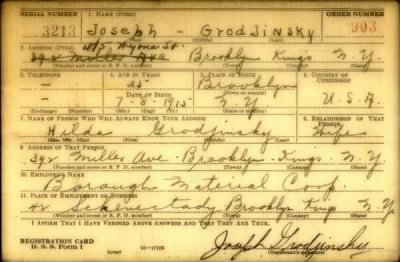 SERIAL NUMBER 1. NAME (Print) ORDER NUMBER
3213 JOSEPH - GRODJINSKY 903
2. ADDRESS (Print)
392 Miller Ave Brooklyn Kings N.Y.
(Number and street or R. F. D. number) (Town) (County) (State)
3. TELEPHONE 4. AGE IN YEARS 5. PLACE OF BIRTH 6. COUNTRY OF CITIZENSHIP
— 25 Brooklyn
DATE OF BIRTH (Town or county)
— 7-8-1915 N.Y. U.S.A.
(Exchange) (Number) (Mo.) (Day) (Yr.) (State or country)
7. NAME OF PERSON WHO WILL ALWAYS KNOW YOUR ADDRESS 8. RELATIONSHIP OF THAT PERSON
Hilda Grodjinsky Wife
9. ADDRESS OF THAT PERSON
392 Miller Ave. Brooklyn Kings N.Y.
(Number and street or R. F. D. number) (Town) (County) (State)
10. EMPLOYER'S NAME
Borough Material Corp.
11. PLACE OF EMPLOYMENT OR BUSINESS
42 Schenectady Brooklyn Kings N.Y.
(Number and street or R. F. D. number) (Town) (County) (State)
I AFFIRM THAT I HAVE VERIFIED ABOVE ANSWERS AND THAT THEY ARE TRUE.
REGISTRATION CARD
D. S. S. Form 1 (over) 16-17105 Joseph Grodjinsky
(Registrant's signature)